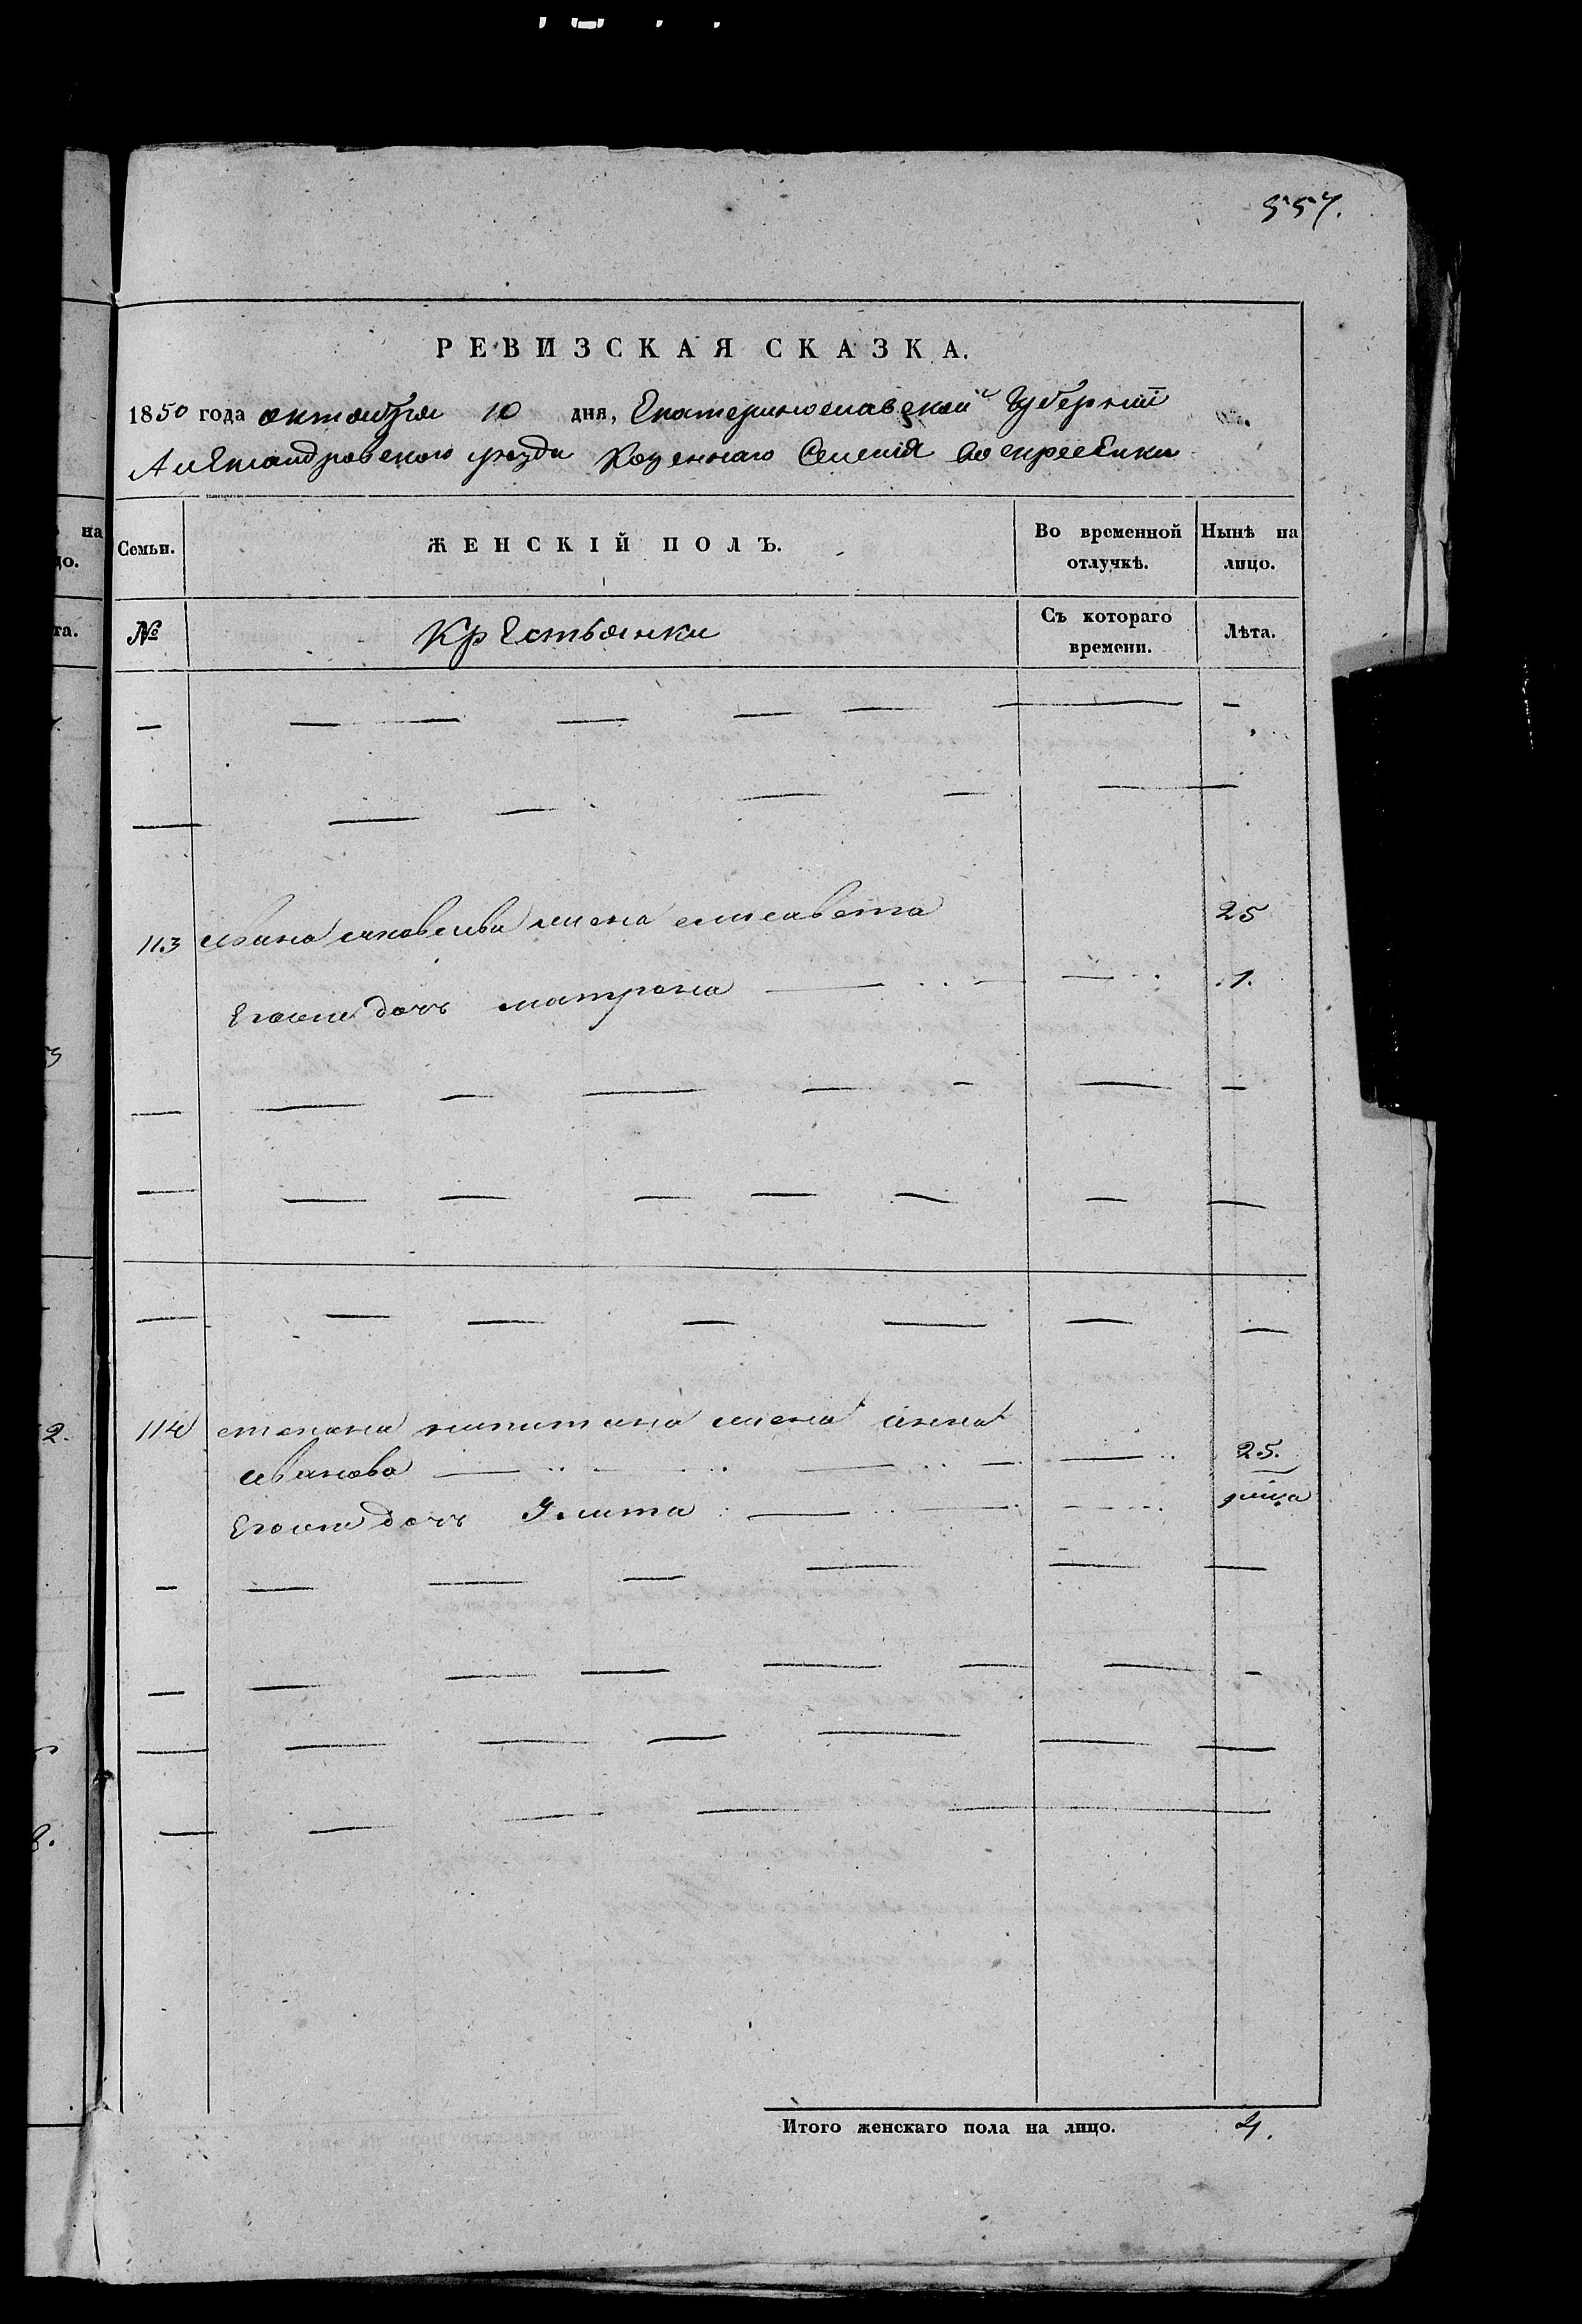 557.
РЕВИЗСКАЯ СКАЗКА.
1850 года октября 10 дня, Екатеринославской Губернiи
Александровского уезда Козеннаго Селенiя Воскресенки
на
Семьи.
ЖЕНСКІЙ ПОЛЪ.
Во временной отлучкѣ.
Нынѣ на лицо.
№
Крестьянки
Съ котораго времени.
Лѣта.
113 ивана яковлева жена елисавета 25
Егоже дочь матрона 1.
114 степана капитана жена анна
иванова 25.
Егоже дочь Улита
Итого женскаго пола на лицо. 4.